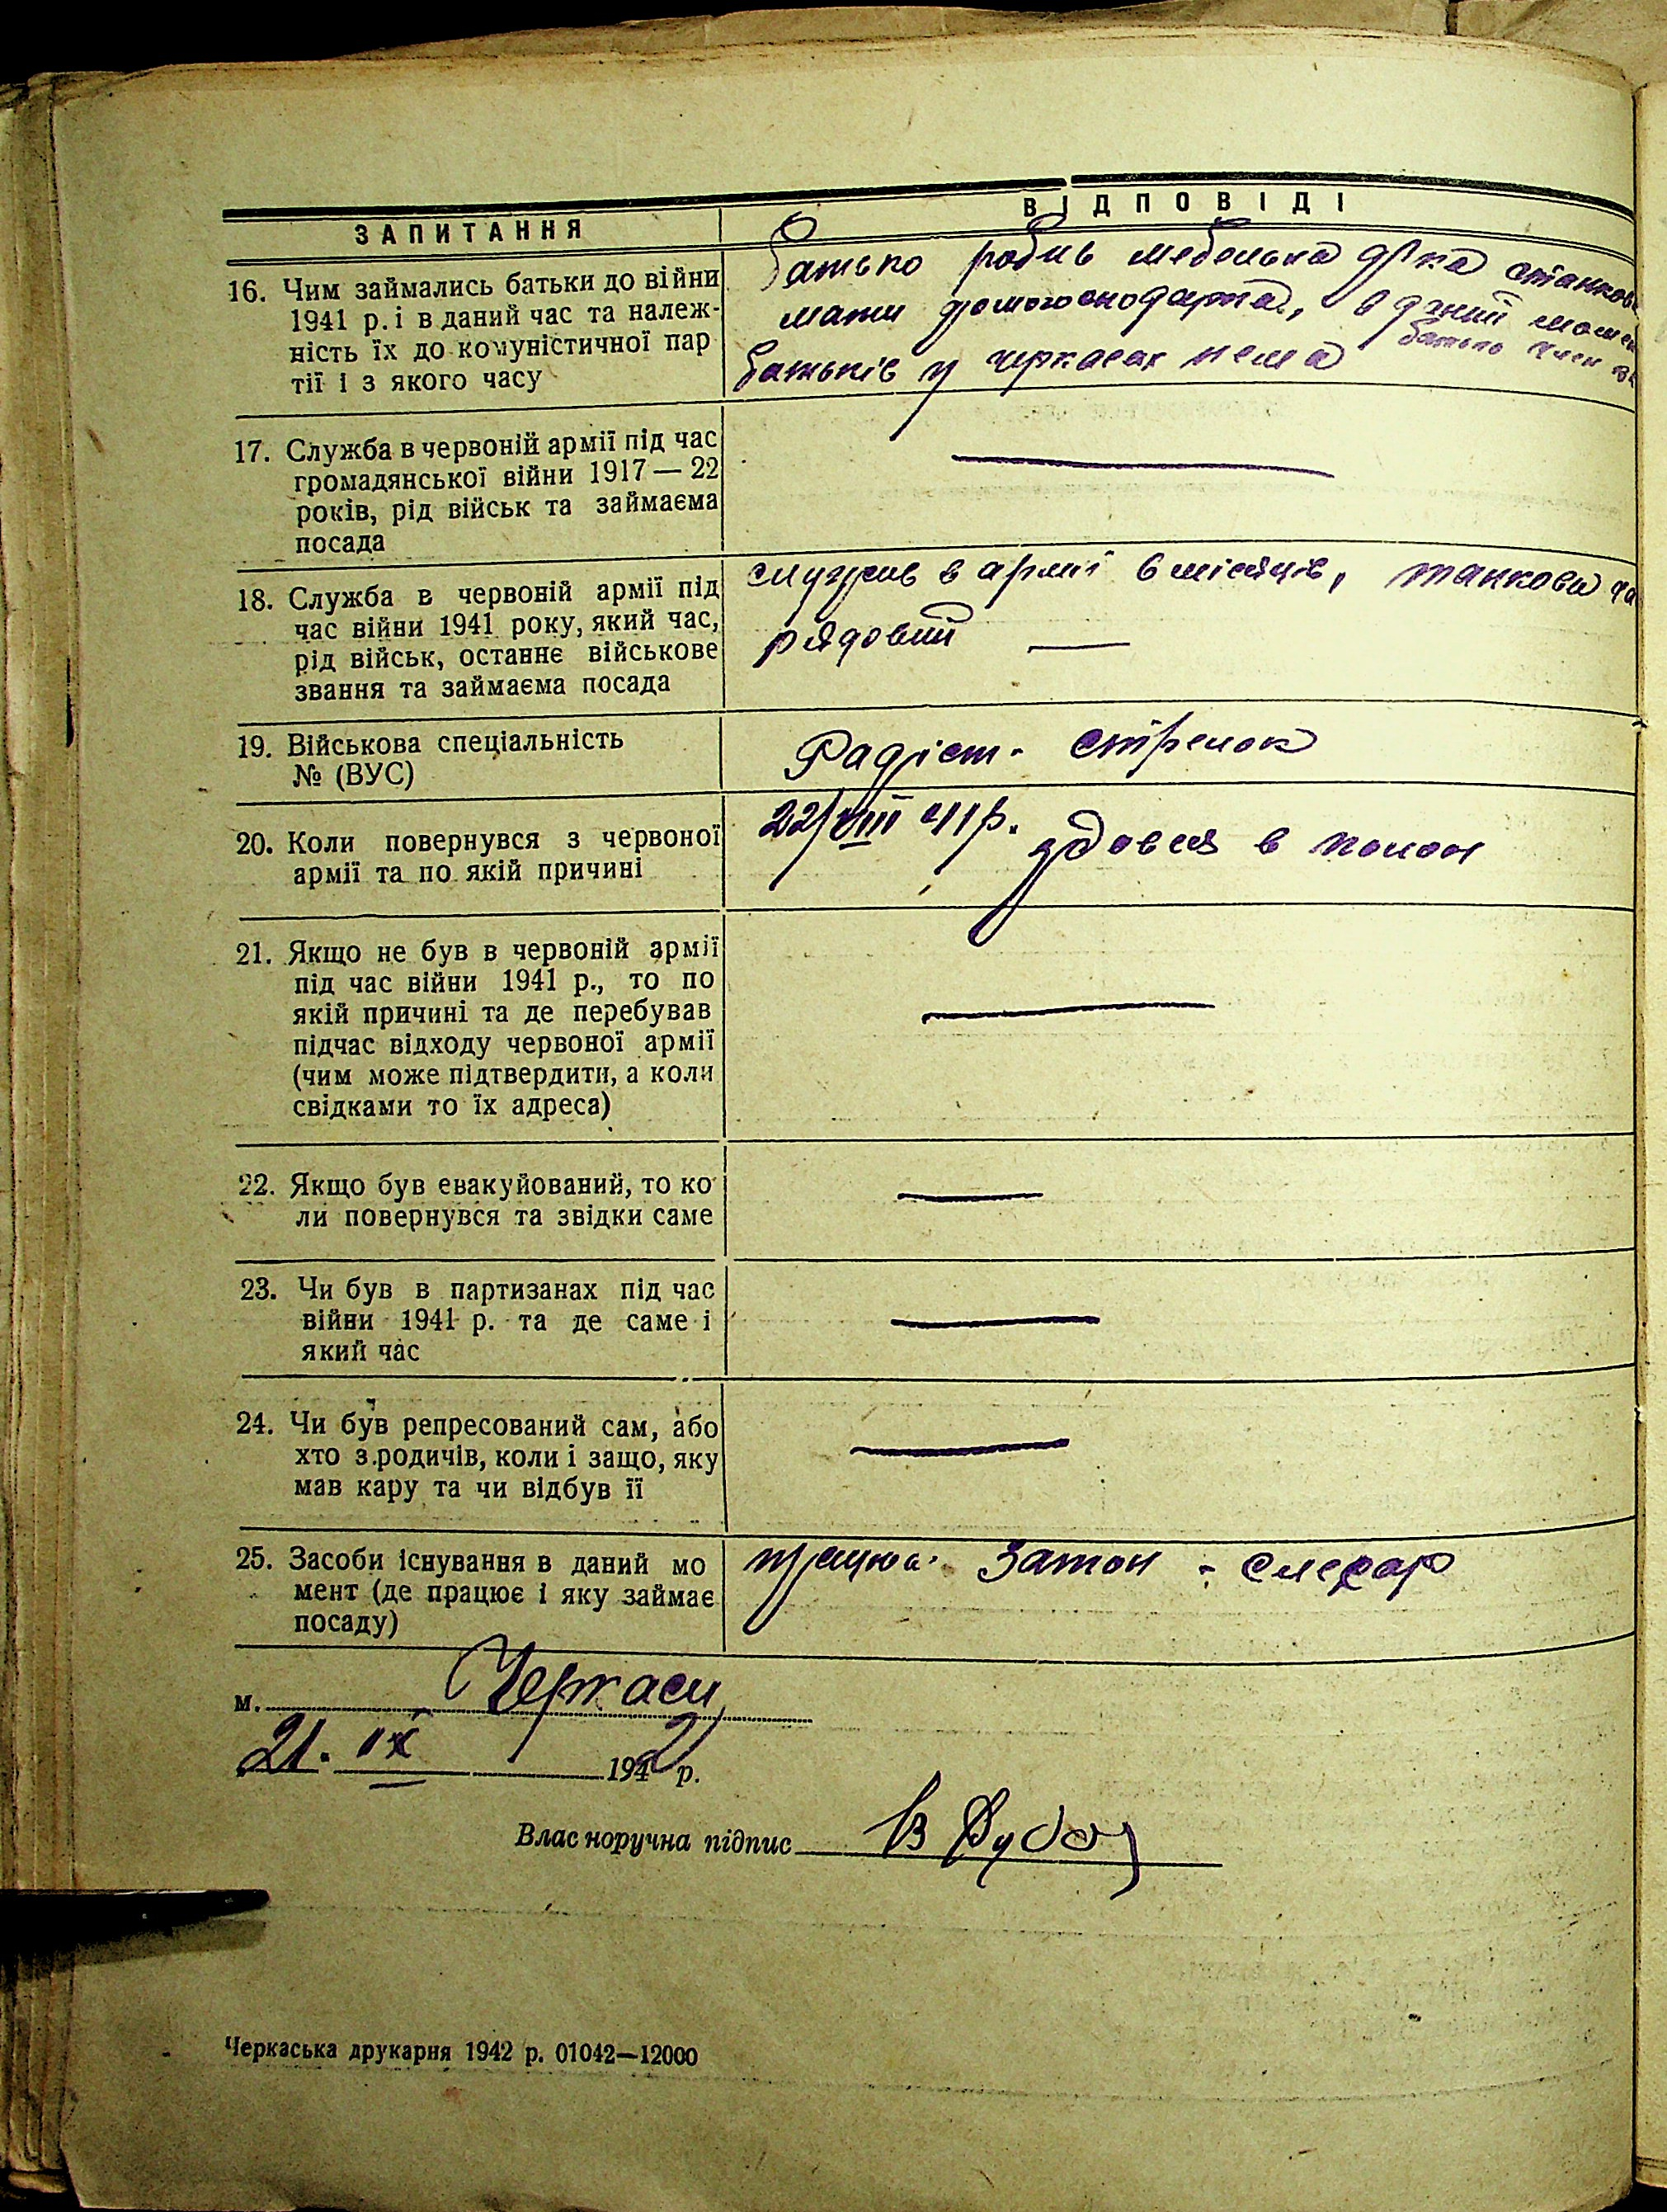 ЗАПИТАННЯ
ВІДПОВІДІ
16. Чим займались батьки до війни
1941 р. і в даний час та належ-
ність їх до комуністичної пар
тії і з якого часу
Батько робив мебельна ф-ка
мати домогосподарка, в даний
батьків у черкасах нема
батько член
17. Служба в червоній армії під час
громадянської війни 1917 — 22
років, рід військ та займаєма
посада
18. Служба в червоній армії під
час війни 1941 року, який час,
рід військ, останнє військове
звання та займаєма посада
служив в армії 6 місяців, танкова
рядовий —
19. Військова спеціальність
№ (ВУС)
Радіст - стрелок
20. Коли повернувся з червоної
армії та по якій причині
22/VIII 41 р. здовся в полон
21. Якщо не був в червоній армії
під час війни 1941 р., то по
якій причині та де перебував
підчас відходу червоної армії
(чим може підтвердити, а коли
свідками то їх адреса)
22. Якщо був евакуйований, то ко
ли повернувся та звідки саме
23. Чи був в партизанах під час
війни 1941 р. та де саме і
який час
24. Чи був репресований сам, або
хто з родичів, коли і защо, яку
мав кару та чи відбув її
25. Засоби існування в даний мо
мент (де працює і яку займає
посаду)
Затон - слесар
м. Черкаси
21. IX 1942 р.
Власноручна підпис
Черкаська друкарня 1942 р. 01042—12000